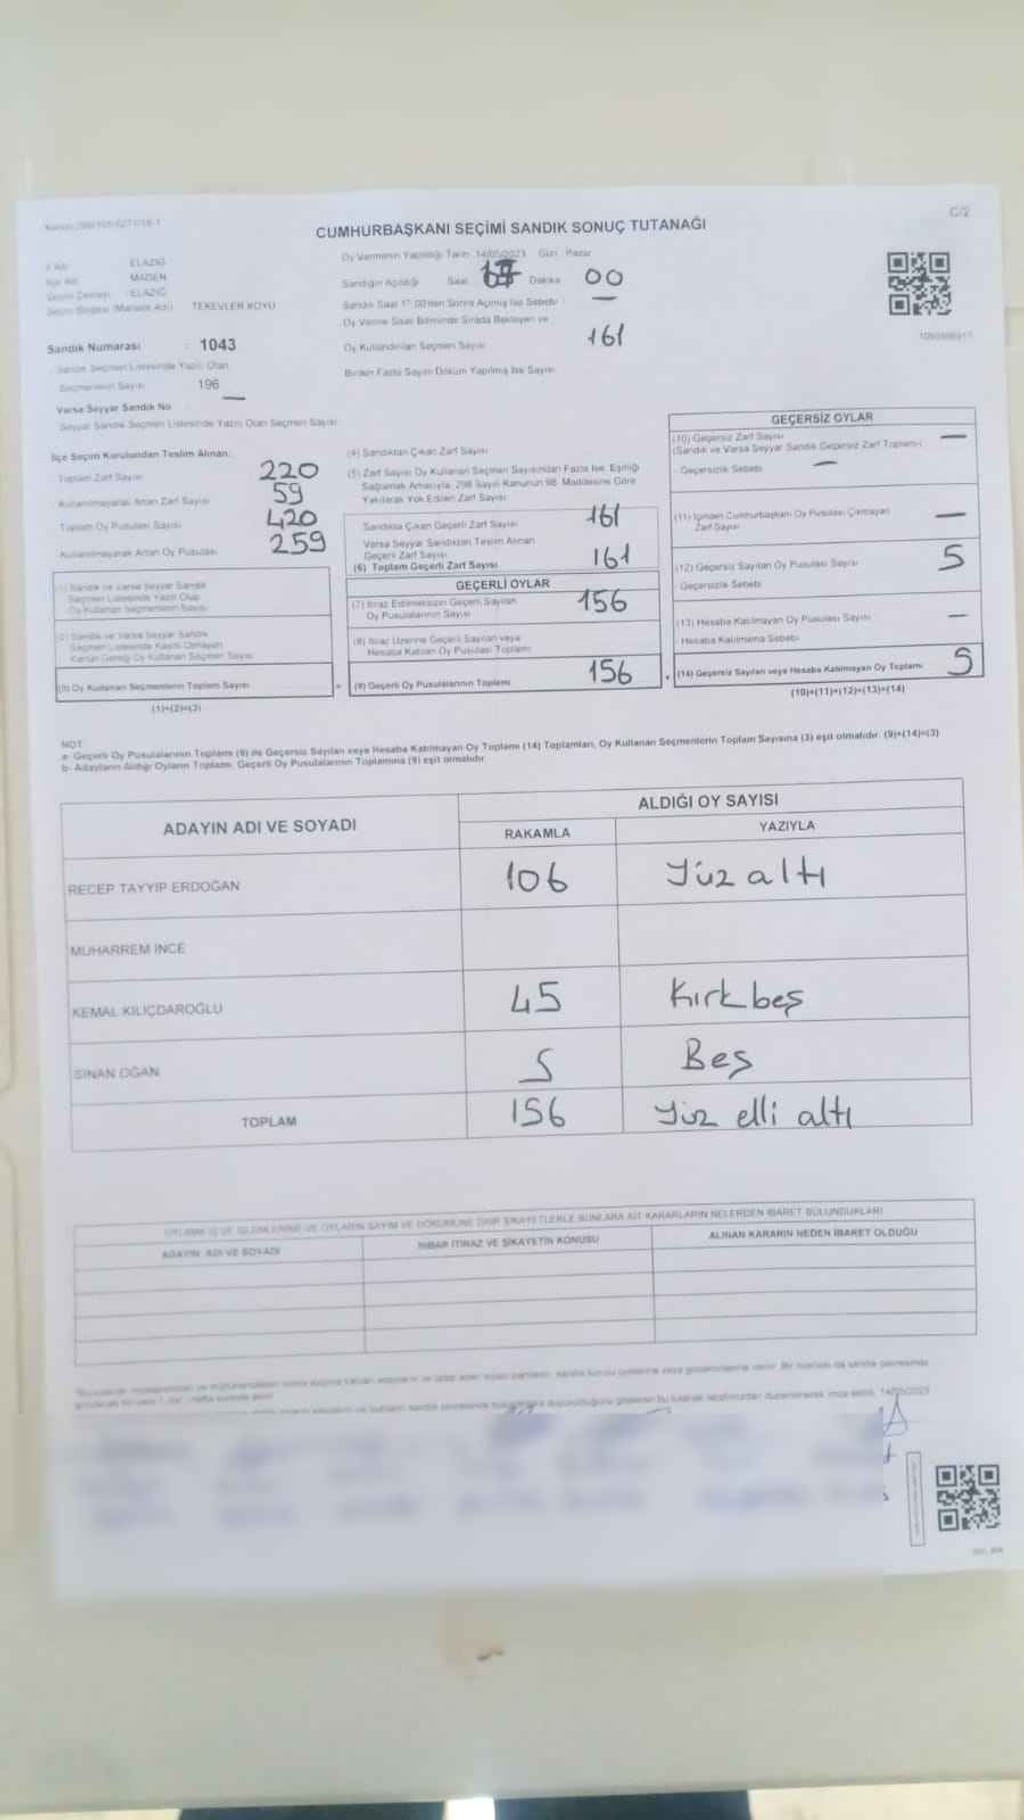 C/2
CUMHURBAŞKANI SEÇİMİ SANDIK SONUÇ TUTANAĞI
Oy Vermenin Yapıldığı Tarih 14/05/2023 Gün Pazar
ELAZIĞ
MADEN
Sandığın Açıldığı Saat 17 Dakika 00
ELAZIĞ
TEKEVLER KÖYÜ
Sandık Saat 17:00'den Sonra Açılmış İse Sebebi —
Oy Verme Saati Bitiminde Sırada Bekleyen ve
Oy Kullandırılan Seçmen Sayısı 161
Sandık Numarası : 1043
Sandık Seçmen Listesinde Yazılı Olan
Seçmenlerin Sayısı 196
Birden Fazla Sayım Döküm Yapılmış İse Sayısı
Varsa Seyyar Sandık No —
Seyyar Sandık Seçmen Listesinde Yazılı Olan Seçmen Sayısı
İlçe Seçim Kurulundan Teslim Alınan:
Toplam Zarf Sayısı 220
Kullanılmayarak Artan Zarf Sayısı 59
Toplam Oy Pusulası Sayısı 420
Kullanılmayarak Artan Oy Pusulası 259
(1) Sandık ve varsa Seyyar Sandık
Seçmen Listesinde Yazılı Olup
Oy Kullanan Seçmenlerin Sayısı
(2) Sandık ve Varsa Seyyar Sandık
Seçmen Listesinde Kaydı Olmayan
Kanun Gereği Oy Kullanan Seçmen Sayısı
(3) Oy Kullanan Seçmenlerin Toplam Sayısı
(1)+(2)=(3)
(4) Sandıktan Çıkan Zarf Sayısı
(5) Zarf Sayısı Oy Kullanan Seçmen Sayısından Fazla İse, Eşitliği
Sağlamak Amacıyla, 298 Sayılı Kanunun 98. Maddesine Göre
Yakılarak Yok Edilen Zarf Sayısı
Sandıkta Çıkan Geçerli Zarf Sayısı 161
Varsa Seyyar Sandıktan Teslim Alınan
Geçerli Zarf Sayısı
(6) Toplam Geçerli Zarf Sayısı 161
GEÇERLİ OYLAR
(7) İtiraz Edilmeksizin Geçerli Sayılan
Oy Pusulalarının Sayısı 156
(8) İtiraz Üzerine Geçerli Sayılan veya
Hesaba Katılan Oy Pusulası Toplamı
(9) Geçerli Oy Pusulalarının Toplamı 156
GEÇERSİZ OYLAR
(10) Geçersiz Zarf Sayısı
(Sandık ve Varsa Seyyar Sandık Geçersiz Zarf Toplamı) —
Geçersizlik Sebebi —
(11) İçinden Cumhurbaşkanı Oy Pusulası Çıkmayan
Zarf Sayısı —
(12) Geçersiz Sayılan Oy Pusulası Sayısı 5
Geçersizlik Sebebi
(13) Hesaba Katılmayan Oy Pusulası Sayısı —
Hesaba Katılmama Sebebi
(14) Geçersiz Sayılan veya Hesaba Katılmayan Oy Toplamı 5
(10)+(11)+(12)+(13)=(14)
NOT:
a- Geçerli Oy Pusulalarının Toplamı (9) ile Geçersiz Sayılan veya Hesaba Katılmayan Oy Toplamı (14) Toplamları, Oy Kullanan Seçmenlerin Toplam Sayısına (3) eşit olmalıdır. (9)+(14)=(3)
b- Adayların Aldığı Oyların Toplamı, Geçerli Oy Pusulalarının Toplamına (9) eşit olmalıdır.
ADAYIN ADI VE SOYADI ALDIĞI OY SAYISI
RAKAMLA YAZIYLA
RECEP TAYYİP ERDOĞAN 106 Yüz altı
MUHARREM İNCE
KEMAL KILIÇDAROĞLU 45 Kırk beş
SİNAN OĞAN 5 Beş
TOPLAM 156 Yüz elli altı
ADAYIN ADI VE SOYADI İHBAR İTİRAZ VE ŞİKAYETİN KONUSU ALINAN KARARIN NEDEN İBARET OLDUĞU
14/05/2023